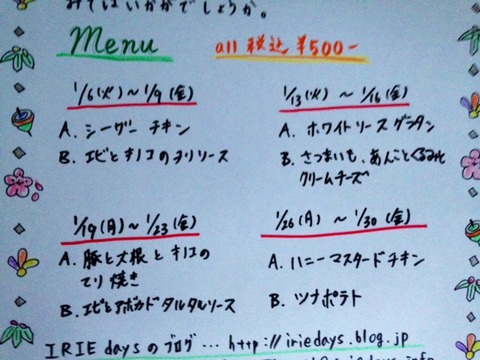 みてはいかがでしょうか。
Menu
all 税込 ¥500-
1/6(火)～1/9(金)
A. シーザー チキン
B. エビとキノコのヨリソース
1/13(火)～1/16(金)
A. ホワイトソースグラタン
B. さつまいも、あんことくるみ
クリームチーズ
1/19(月)～1/23(金)
A. 豚と大根とキノコの
てり焼き
B. エビとアボカドタルタルソース
1/26(月)～1/30(金)
A. ハニーマスタードチキン
B. ツナポテト
IRIE daysのブログ… http://iriedays.blog.jp